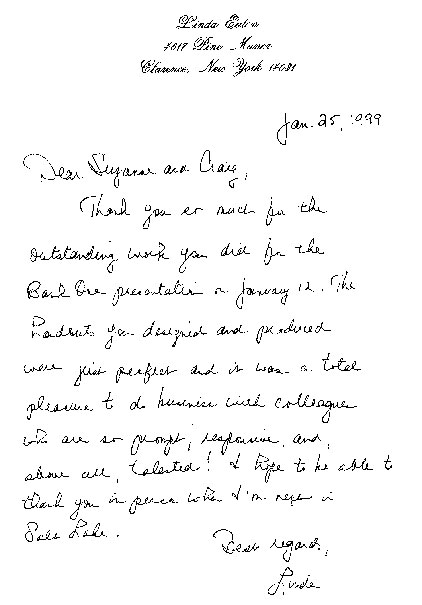 Linda
4617 Pine Manor
Clarence, New York 14031
Jan. 25, 1999
Dear Suzanne and Craig,
Thank you so much for the
outstanding work you did for the
Bank One presentation on January 12. The
handouts you designed and produced
were just perfect and it was a total
pleasure to do business with colleagues
who are so prompt, responsive, and,
above all, talented! I hope to be able to
thank you in person when I'm next in
Lake.
Best regards,
Linda